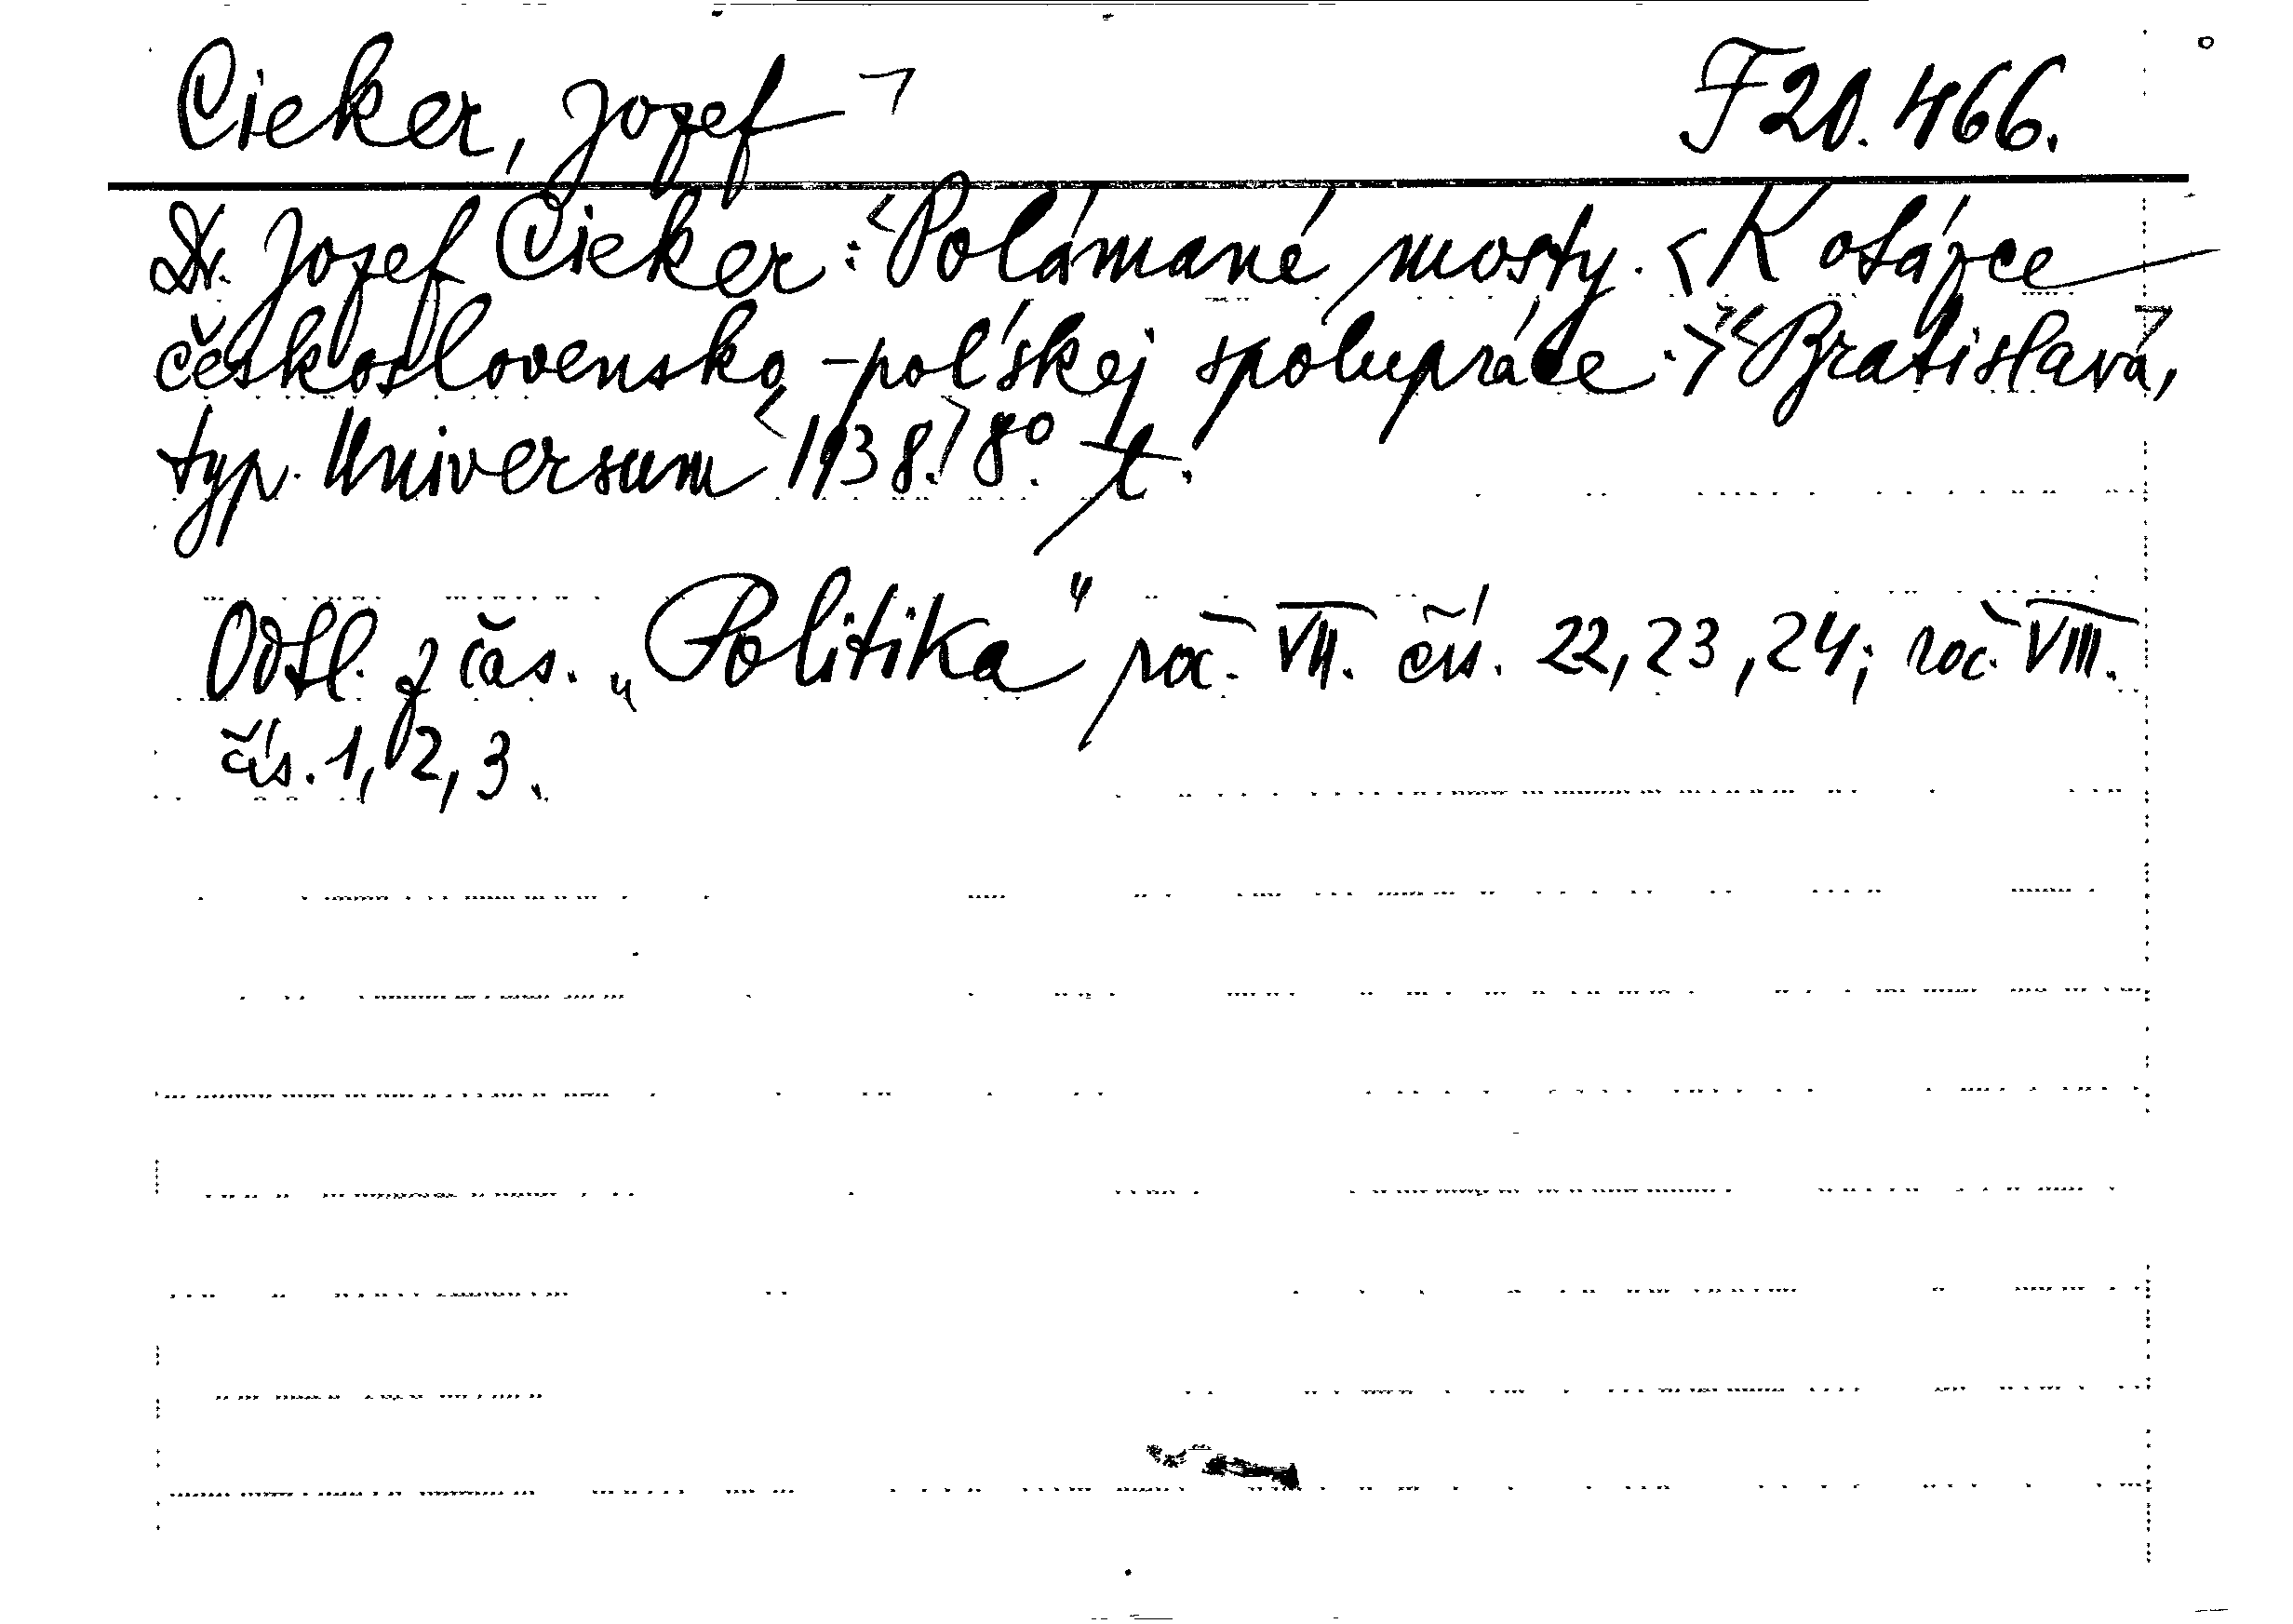 Cieker, Jozef ﹁ F 20.466.
Dr. Jozef Cieker: <Polámané mosty. <K otázce
československo-poľskej spolupráce.>> <Bratislava,>
typ. Universum <1938.> 8°. t.
Odtl. z čas. „Politika" roč. VII. čís. 22, 23, 24; roč. VIII.
čís. 1, 2, 3.